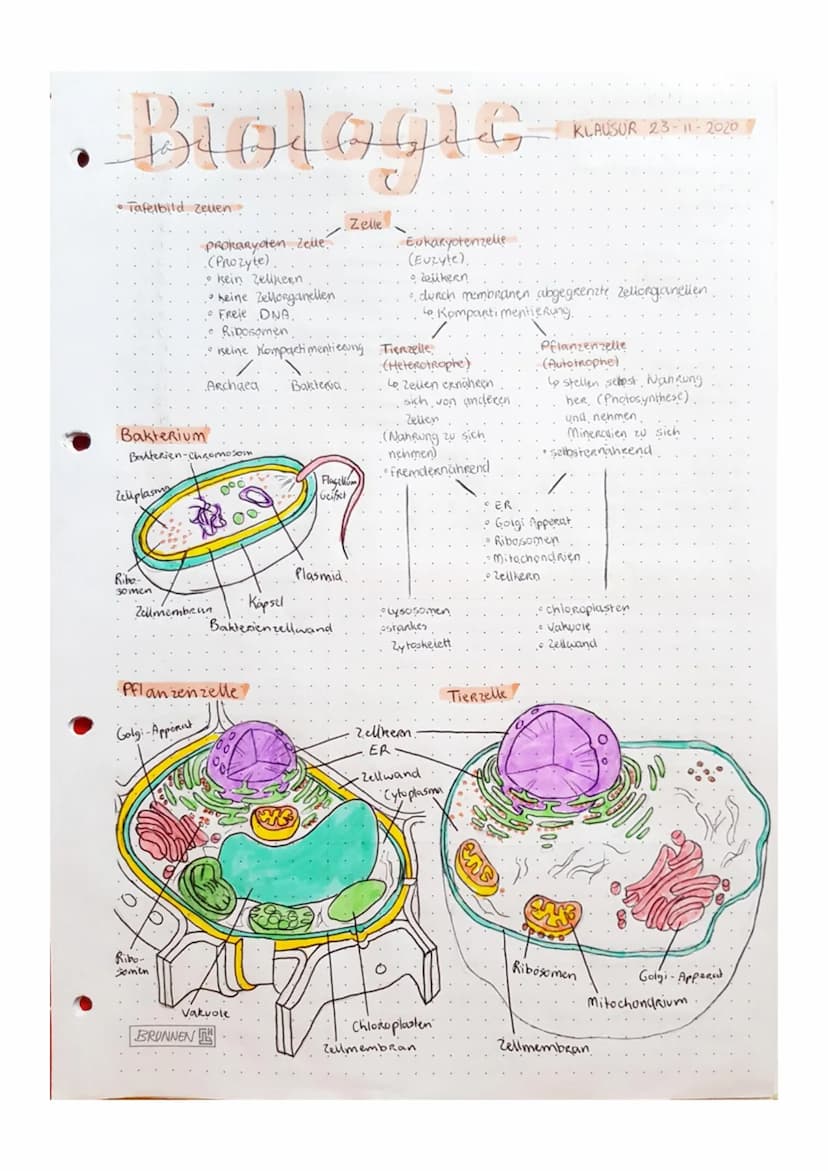 Biologie
KLAUSUR 23-11-2020
• Tafelbild Zellen
Zelle
Prokaryoten Zelle
(Prozyte)
• kein Zellkern
• keine Zellorganellen
• Freie DNA
• Ribosomen
• keine Kompartimentierung
Archaea
Bakteria
Eukaryotenzelle
(Euzyte)
• Zellkern
• durch membranen abgegrenzte Zellorganellen
↳ Kompartimentierung
Tierzelle
(Heterotrophe)
↳ Zellen ernähren
sich von anderen
Zellen
(Nahrung zu sich
nehmen)
• Fremdernährend
Pflanzenzelle
(Autotrophe)
↳ stellen selbst Nahrung
her (Photosynthese)
und nehmen
Mineralien zu sich
• selbsternährend
• ER
• Golgi Apparat
• Ribosomen
• Mitochondrien
• Zellkern
• Lysosomen
• starkes
Zytoskelett
• chloroplasten
• Vakuole
• Zellwand
Bakterium
Bakterien-chromosom
Zellplasma
Flagellum
Geißel
Ribo-
somen
Zellmembran
Kapsel
Plasmid
Bakterienzellwand
Pflanzenzelle
Tierzelle
Golgi-Apparat
Zellkern
ER
Zellwand
Cytoplasma
Ribo-
somen
Vakuole
Chloroplasten
Zellmembran
Ribosomen
Golgi-Apparat
Mitochondrium
Zellmembran
BRUNNEN